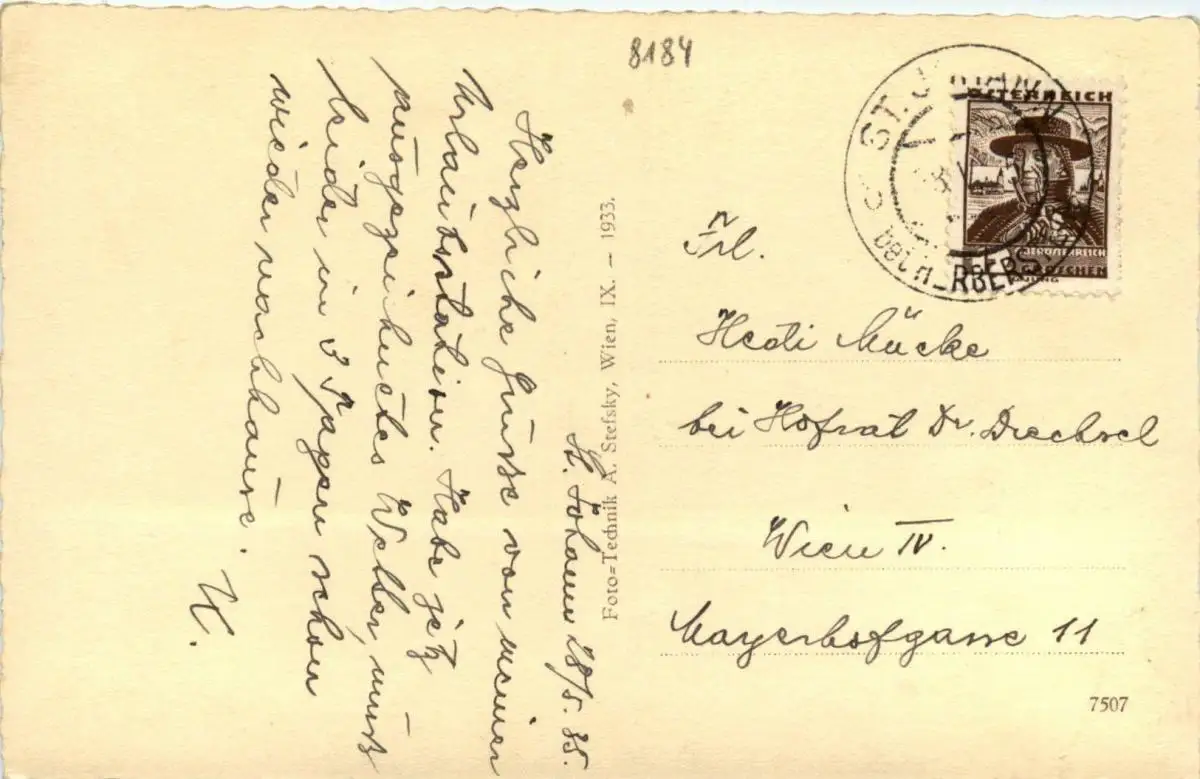 8184
St. Johann 28/5. 35.
Herzliche Grüsse von meiner
Urlaubsstation. Habe jetzt
ausgezeichnetes Wetter, muß
leider in 3 Tagen schon
wieder nachhause.
K.
Foto=Technik A. Stefsky, Wien, IX. – 1933.
ST. J
bei H RBERST
ÖSTERREICH
GROSCHEN
Frl.
Hedi Mücke
bei Hofrat Dr. Drechsel
Wien IV.
Mayerhofgasse 11
7507